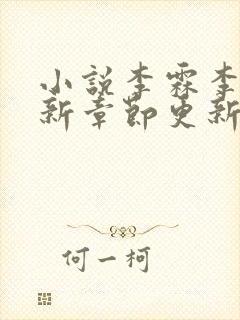 小说李霖李
新章節更新
何一柯